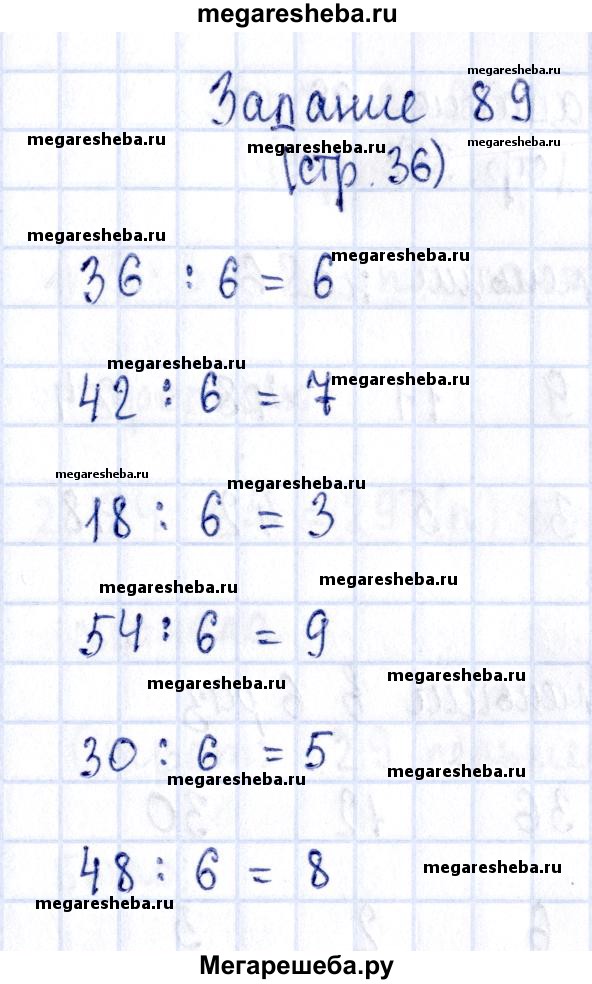 megaresheba.ru
Задание 89
megaresheba.ru
megaresheba.ru
megaresheba.ru
megaresheba.ru
(стр. 36)
megaresheba.ru
megaresheba.ru
36 : 6 = 6
megaresheba.ru
megaresheba.ru
42 : 6 = 7
megaresheba.ru
megaresheba.ru
18 : 6 = 3
megaresheba.ru
megaresheba.ru
54 : 6 = 9
megaresheba.ru
megaresheba.ru
30 : 6 = 5
megaresheba.ru
megaresheba.ru
48 : 6 = 8
megaresheba.ru
megaresheba.ru
Мегарешеба.ру